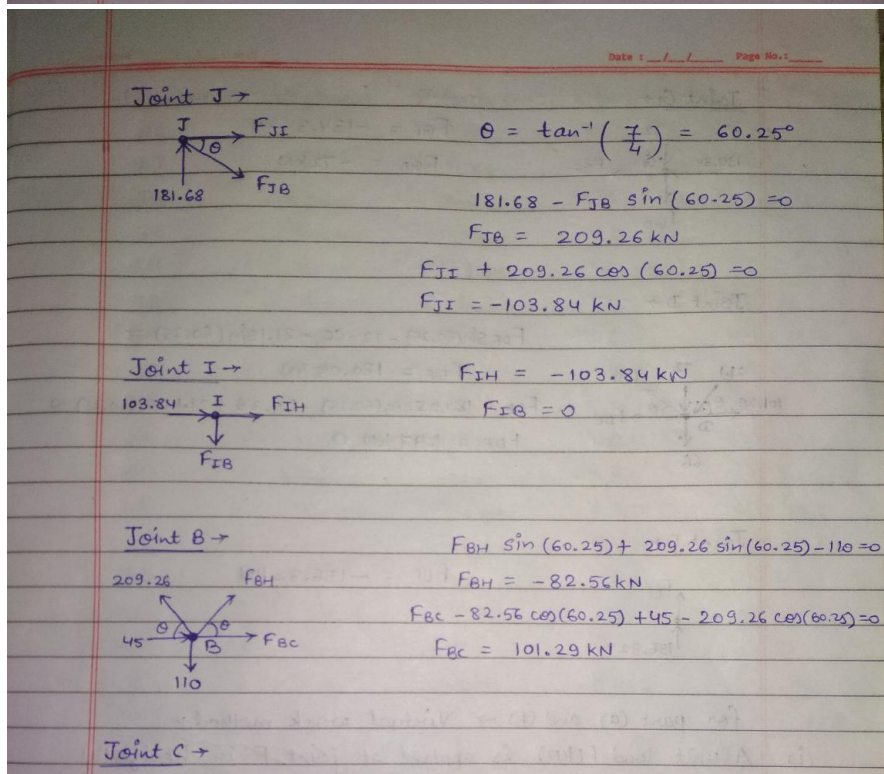 Date : __/__/____ Page No.:____
Joint J →
J
F_JI
θ
F_JB
181.68
θ = tan⁻¹ (7/4) = 60.25°
181.68 - F_JB sin (60.25) =0
F_JB = 209.26 kN
F_JI + 209.26 cos (60.25) =0
F_JI = -103.84 kN
Joint I →
103.84
I
F_IH
F_IB
F_IH = -103.84 kN
F_IB = 0
Joint B →
209.26
F_BH
45
θ
θ
B
F_BC
110
F_BH sin (60.25) + 209.26 sin (60.25) - 110 =0
F_BH = -82.56 kN
F_BC - 82.56 cos(60.25) +45 - 209.26 cos(60.25) =0
F_BC = 101.29 kN
Joint C →